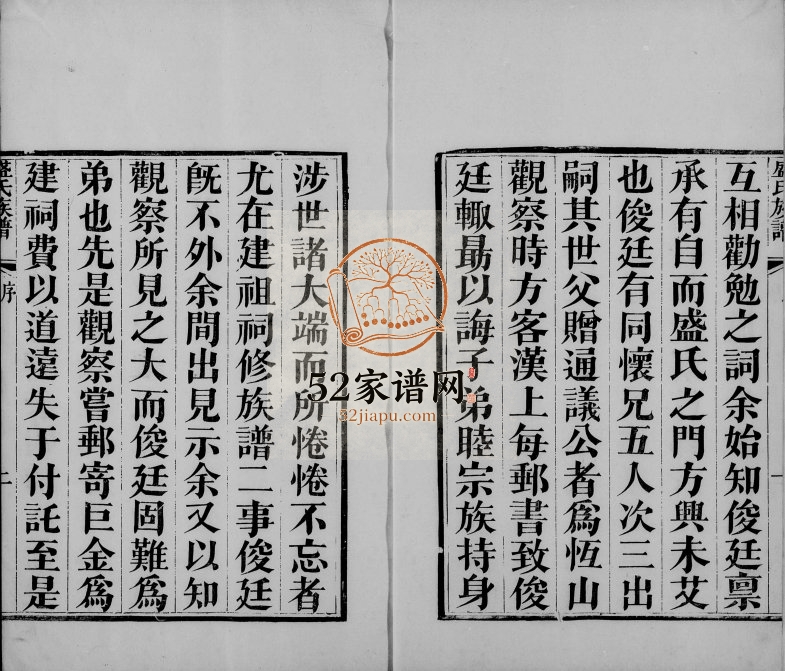 盛氏族譜
一
互相勸勉之詞余始知俊廷禀
承有自而盛氏之門方興未艾
也俊廷有同懷兄五人次三出
嗣其世父贈通議公者爲恆山
觀察時方客漢上每郵書致俊
廷輙勗以誨子弟睦宗族持身
涉世諸大端而所惓惓不忘者
尤在建祖祠修族譜二事俊廷
旣不外余間出見示余又以知
觀察所見之大而俊廷固難爲
弟也先是觀察嘗郵寄巨金爲
建祠費以道遠失于付託至是
盛氏族譜
序
二
52家谱网
52jiapu.com